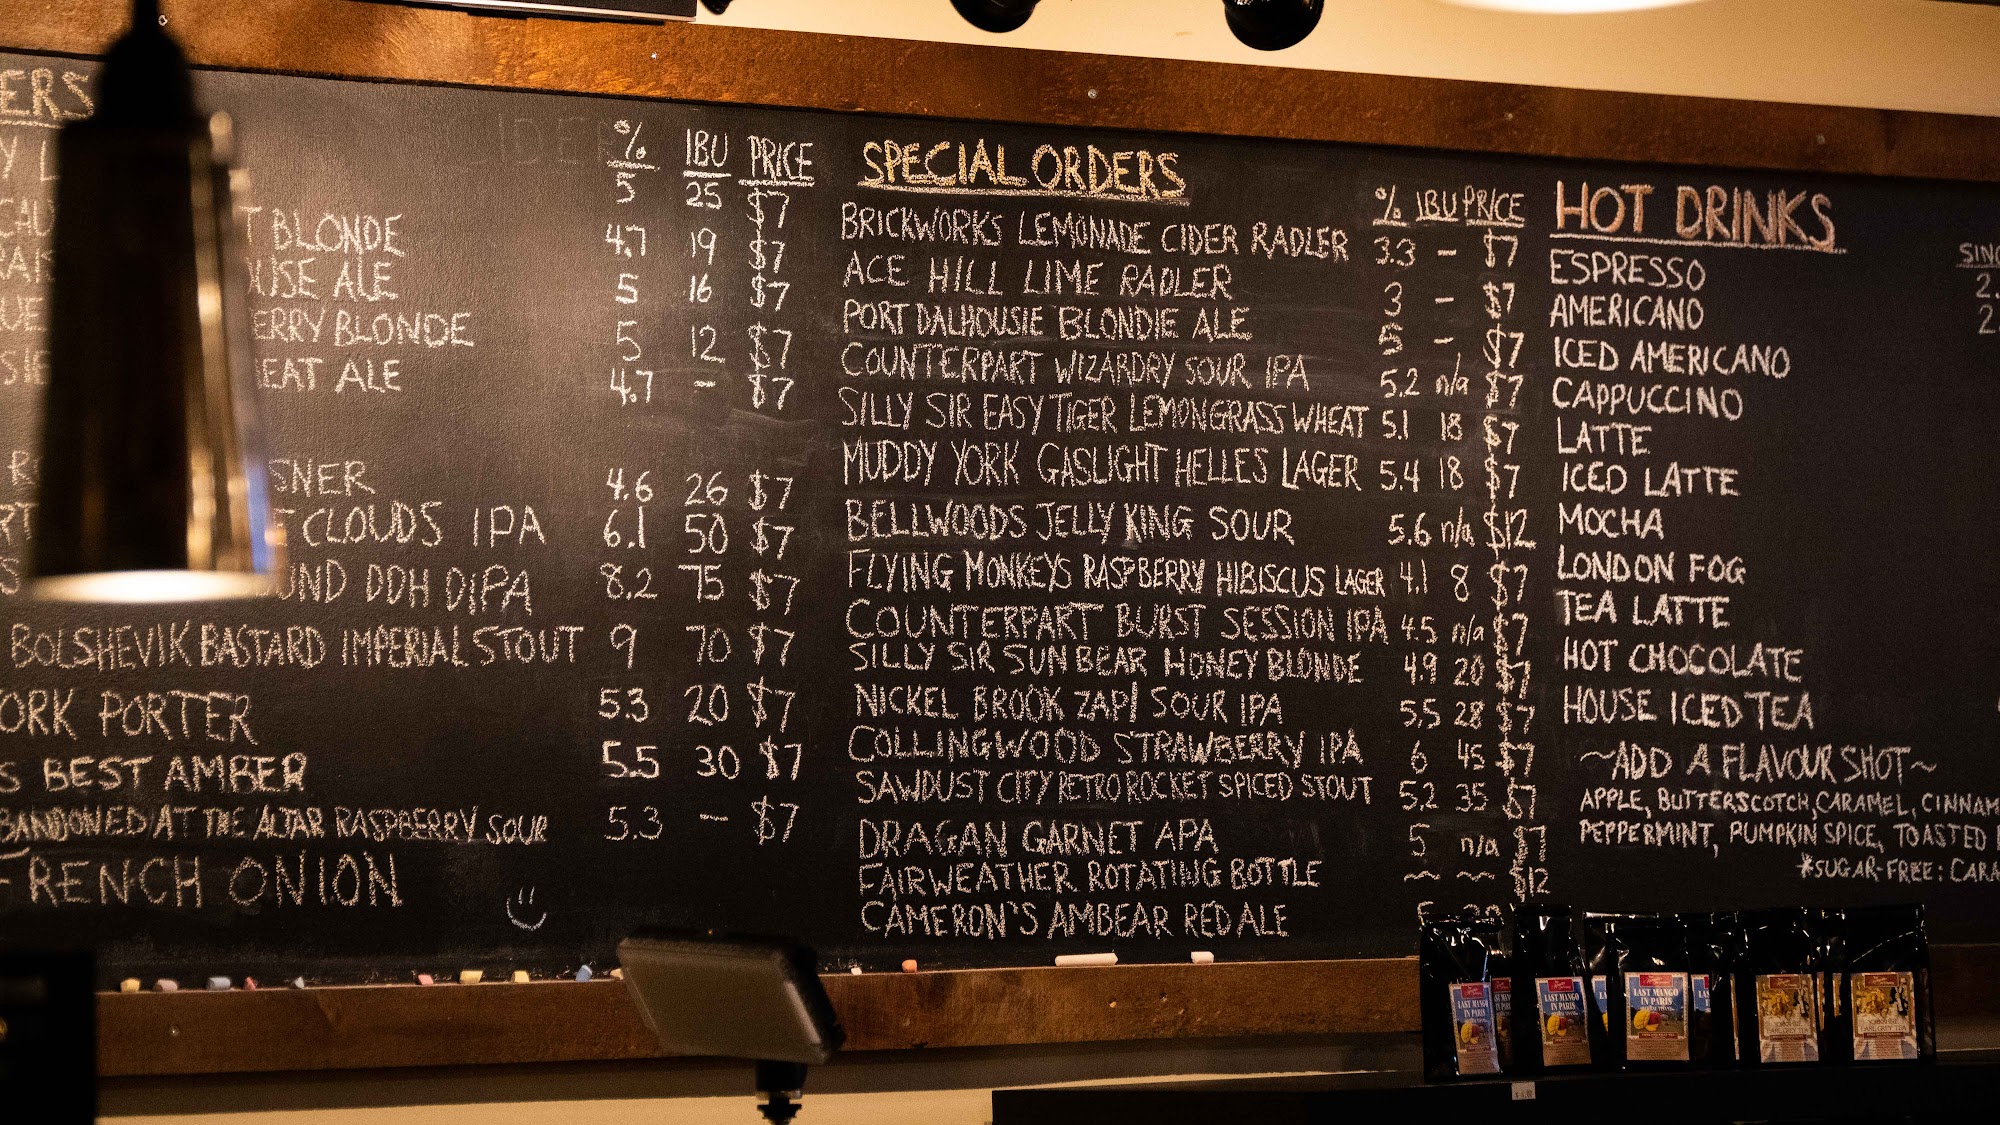 ERS
% IBU PRICE
5 25 $7
T BLONDE 4.7 19 $7
USE ALE 5 16 $7
ERRY BLONDE 5 12 $7
EAT ALE 4.7 - $7
SNER 4.6 26 $7
CLOUDS IPA 6.1 50 $7
UND DDH DIPA 8.2 75 $7
BOLSHEVIK BASTARD IMPERIAL STOUT 9 70 $7
ORK PORTER 5.3 20 $7
S BEST AMBER 5.5 30 $7
BANDONED AT THE ALTAR RASPBERRY SOUR 5.3 - $7
FRENCH ONION
SPECIAL ORDERS
% IBU PRICE
BRICKWORKS LEMONADE CIDER RADLER 3.3 - $7
ACE HILL LIME RADLER 3 - $7
PORT DALHOUSIE BLONDIE ALE 5 - $7
COUNTERPART WIZARDRY SOUR IPA 5.2 n/a $7
SILLY SIR EASY TIGER LEMONGRASS WHEAT 5.1 18 $7
MUDDY YORK GASLIGHT HELLES LAGER 5.4 18 $7
BELLWOODS JELLY KING SOUR 5.6 n/a $12
FLYING MONKEYS RASPBERRY HIBISCUS LAGER 4.1 8 $7
COUNTERPART BURST SESSION IPA 4.5 n/a $7
SILLY SIR SUN BEAR HONEY BLONDE 4.9 20 $7
NICKEL BROOK ZAP! SOUR IPA 5.5 28 $7
COLLINGWOOD STRAWBERRY IPA 6 45 $7
SAWDUST CITY RETRO ROCKET SPICED STOUT 5.2 35 $7
DRAGAN GARNET APA 5 n/a $7
FAIRWEATHER ROTATING BOTTLE ~ ~ $12
CAMERON'S AMBEAR RED ALE
HOT DRINKS
ESPRESSO
AMERICANO
ICED AMERICANO
CAPPUCCINO
LATTE
ICED LATTE
MOCHA
LONDON FOG
TEA LATTE
HOT CHOCOLATE
HOUSE ICED TEA
~ADD A FLAVOUR SHOT~
APPLE, BUTTERSCOTCH, CARAMEL, CINNAM
PEPPERMINT, PUMPKIN SPICE, TOASTED
*SUGAR-FREE: CARA
LAST MANGO IN PARIS
LAST MANGO IN PARIS
LAST MANGO IN PARIS